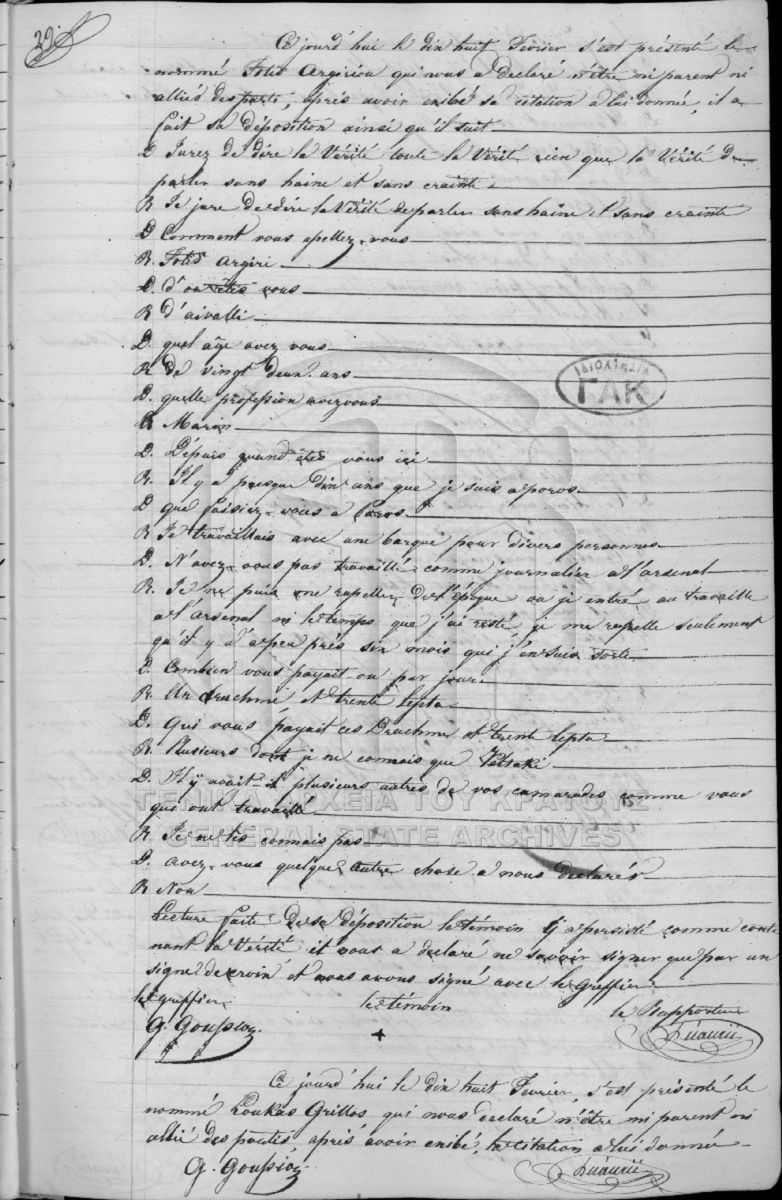 29
Ce jourd'hui le dix huit Fevrier s'est présenté le
nommé Fotis Argiriou qui nous a declaré n'être ni parent ni
alliés des parti, aprés avoir exibé sa citation a lui donnée, il a
fait sa déposition ainsi qu'il suit
D Jurez de dire la Vérité toute la Vérité rien que la Vérité de
parler sans haine et sans crainte.
R Je jure de dire la Vérité de parler sans haine et sans crainte
D Comment vous apellez-vous
R. Fotis Argiri
D. d'ou êtes vous
R d'aivalli
D. quel âge avez vous
R de vingt deux ans
D. quelle profession avez vous
R Marin
D. Dépuis quand êtes vous ici
R. Il y a presque dix ans que je suis a poros
D que faisiez-vous a Poros
R Je travaillais avec une barque pour divers personnes
D. N'avez-vous pas travaillé comme journalier a l'arsenal
R. Je ne puis me rapeller de l'époque ou je entré au travaille
a l'arsenal ni le temps que j'ai resté, je me rapelle seulement
qu'il y a a peu prés six mois qui j'en suis sorte
D. Combien vous payait on par jour
R. Un drachme et trente lepta
D. Qui vous payait ces Drachme et trent lepta
R. Plusieurs dont je ne connais que Tatsaki
D. Il y avait-il plusieurs autres de vos camarades comme vous
qui ont travaillé
R Je ne les connais pas
D. avez-vous quelque autre chose a nous declarér
R Non
Lecture faite de sa déposition le témoin y a persisté comme conte
nant la Vérité et nous a declaré ne savoir signer que par un
signe de croix et nous avons signé avec le Greffier
le greffier le témoin le Rapporteur
G. Goussioz +
ΙΔΙΟΚΤΗΣΙΑ
ΓΑΚ
ΓΕΝΙΚΑ ΑΡΧΕΙΑ ΤΟΥ ΚΡΑΤΟΥΣ
GENERAL STATE ARCHIVES
Ce jourd'hui le dix huit Fevrier, s'est présenté le
nommé Loukas Grillos qui nous declaré n'être ni parent ni
allié des parties aprés avoir exibé, la citation a lui donnée
G. Goussioz